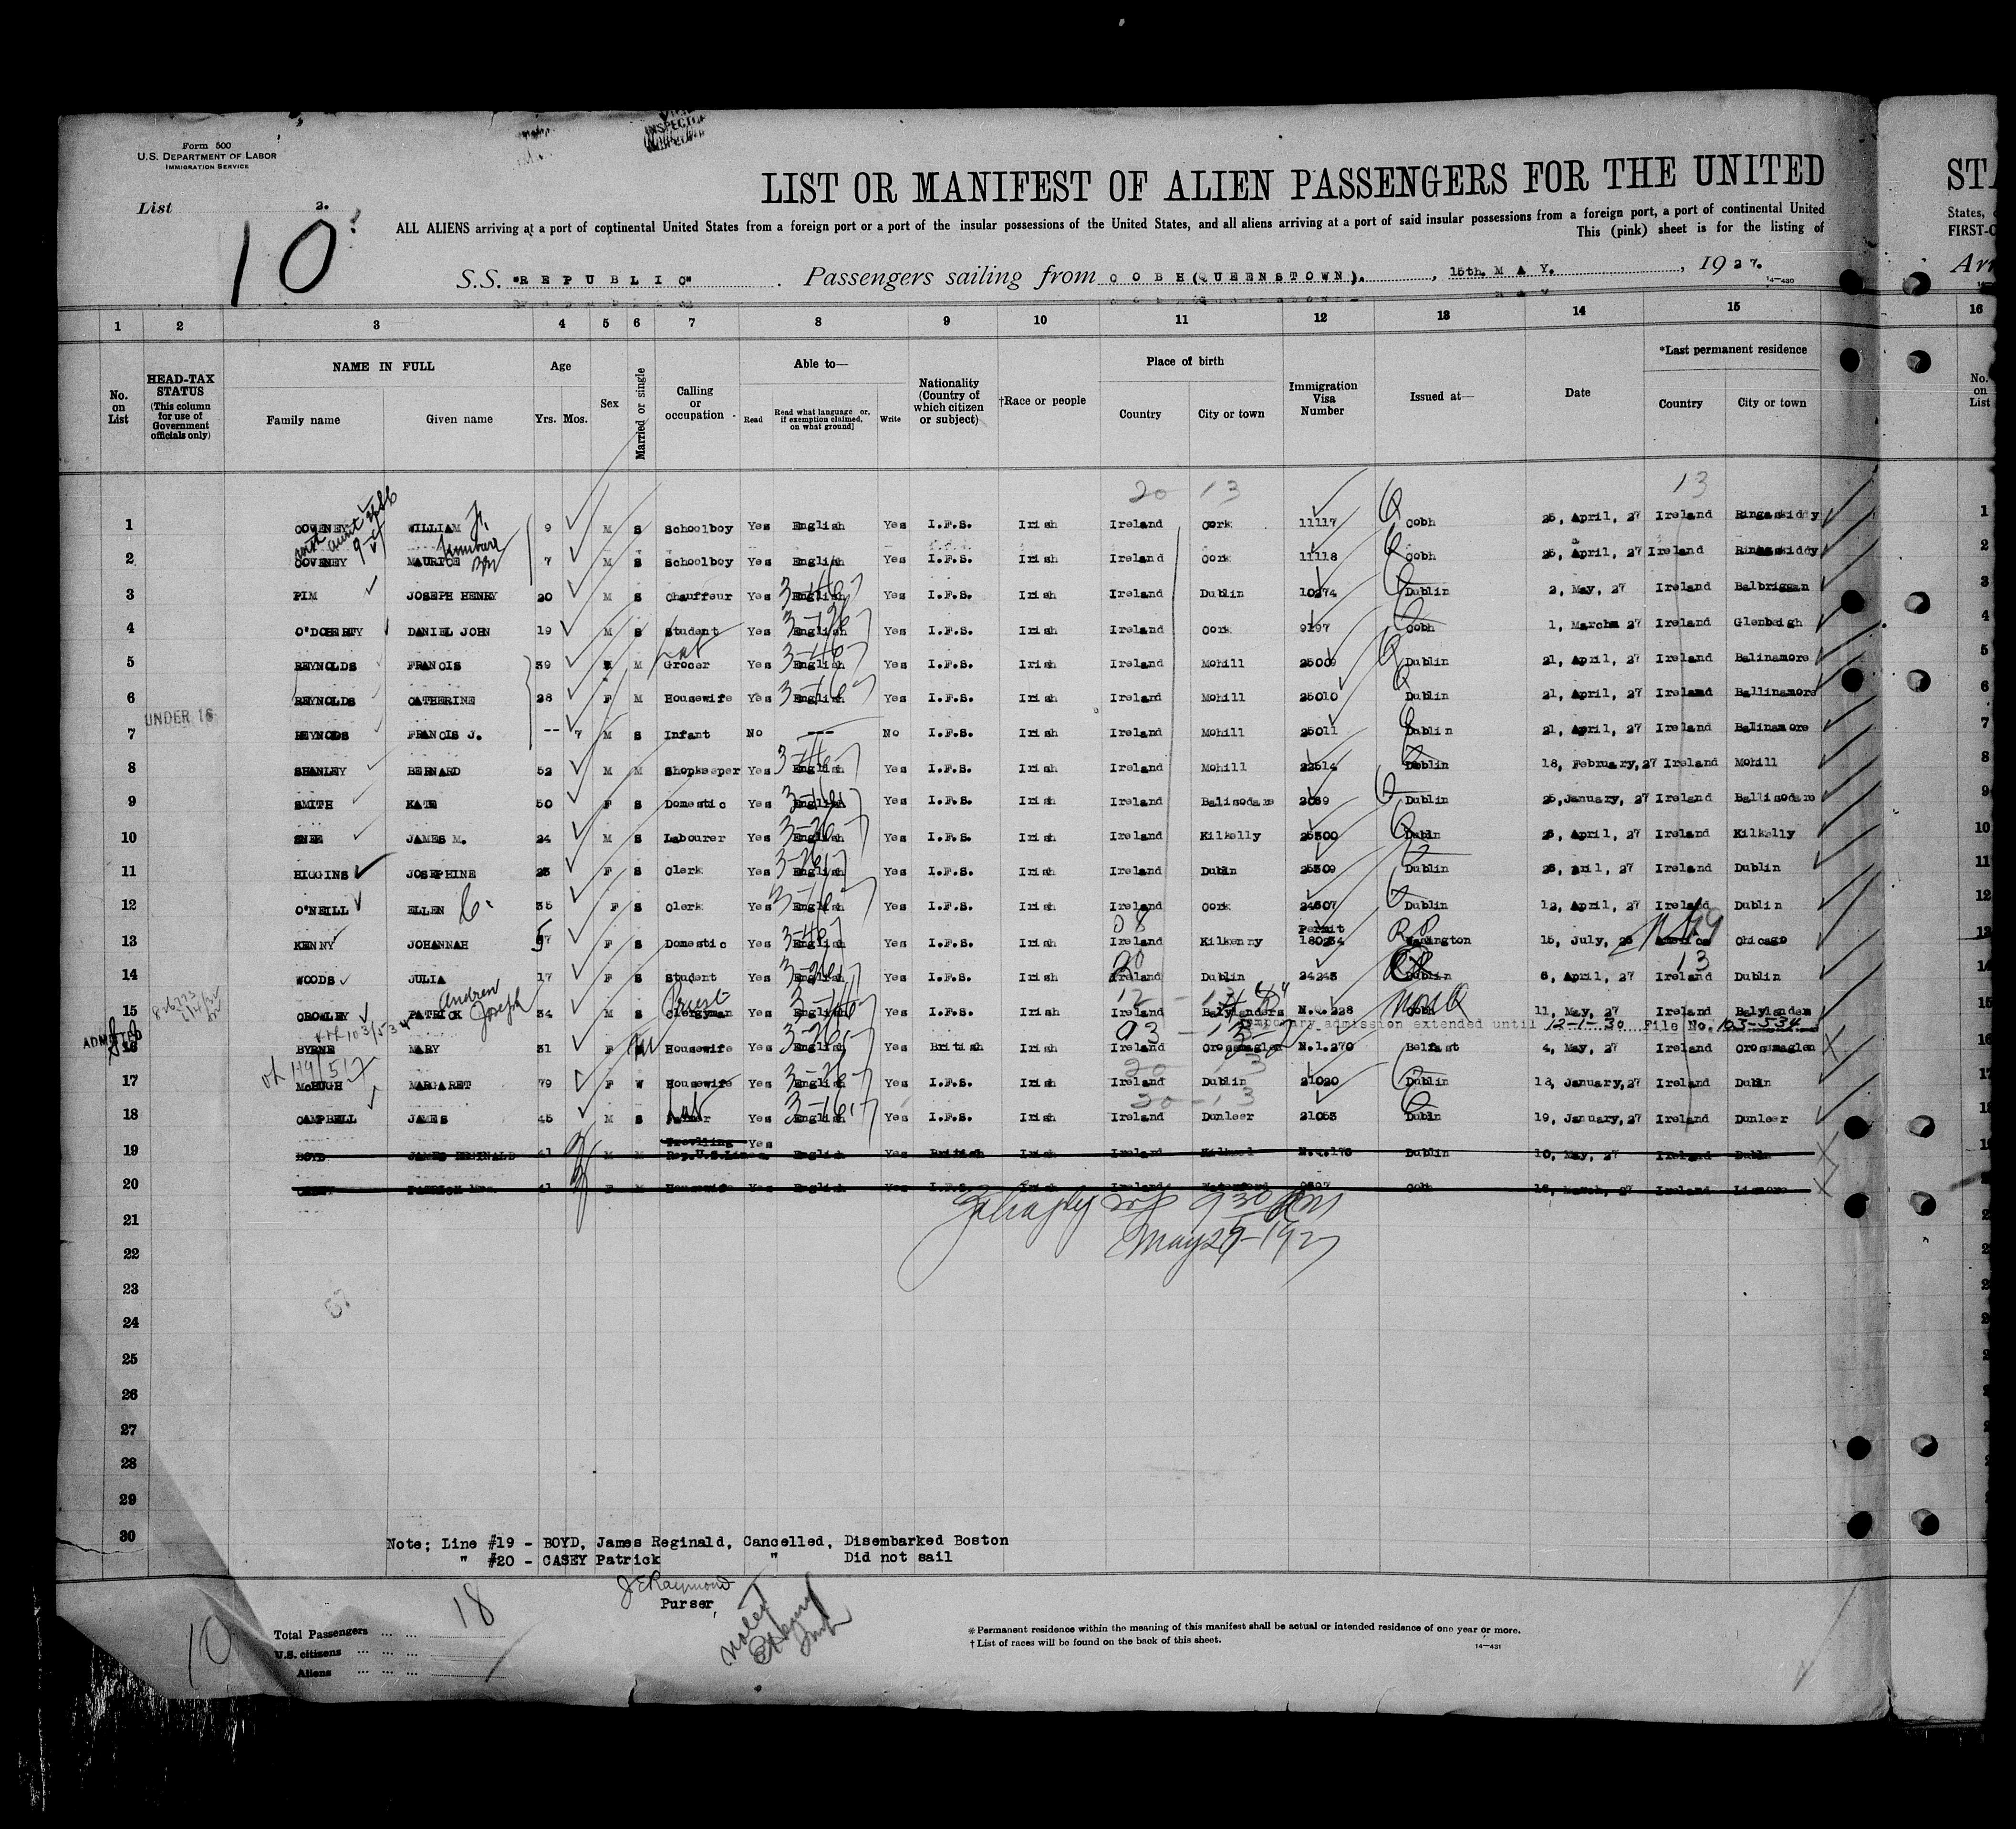 Form 500
U.S. DEPARTMENT OF LABOR
IMMIGRATION SERVICE
INSPECTOR
List 2.
10
LIST OR MANIFEST OF ALIEN PASSENGERS FOR THE UNITED
STA
ALL ALIENS arriving at a port of continental United States from a foreign port or a port of the insular possessions of the United States, and all aliens arriving at a port of said insular possessions from a foreign port, a port of continental United
States,
This (pink) sheet is for the listing of
FIRST-C
S.S. "REPUBLIC" . Passengers sailing from COBH(QUEENSTOWN). , 15th. MAY. , 1927.
Arr
14—430
1 2 3 4 5 6 7 8 9 10 11 12 13 14 15 16
No. on List
HEAD-TAX STATUS (This column for use of Government officials only)
NAME IN FULL
Family name Given name
Age
Yrs. Mos.
Sex
Married or single
Calling or occupation
Able to—
Read Read what language or, if exemption claimed, on what ground] Write
Nationality (Country of which citizen or subject)
†Race or people
Place of birth
Country City or town
Immigration Visa Number
Issued at—
Date
*Last permanent residence
Country City or town
No. on List
20 13 13
1 COVENEY WILLIAM Jr. 9 M S Schoolboy Yes English Yes I.F.S. Irish Ireland Cork 11117 Cobh 25, April, 27 Ireland Ringaskiddy 1
with aunt
2 COVENEY MAURICE 7 M S Schoolboy Yes English Yes I.F.S. Irish Ireland Cork 11118 Cobh 25, April, 27 Ireland Ringaskiddy 2
3 PIM JOSEPH HENRY 20 M S Chauffeur Yes English Yes I.F.S. Irish Ireland Dublin 10274 Dublin 2, May, 27 Ireland Balbriggan 3
4 O'DOHERTY DANIEL JOHN 19 M S Student Yes English Yes I.F.S. Irish Ireland Cork 9197 Cobh 1, March 27 Ireland Glenbeigh 4
5 REYNOLDS FRANCIS 39 M Grocer Yes English Yes I.F.S. Irish Ireland Mohill 25009 Dublin 21, April, 27 Ireland Balinamore 5
6 REYNOLDS CATHERINE 28 F M Housewife Yes English Yes I.F.S. Irish Ireland Mohill 25010 Dublin 21, April, 27 Ireland Ballinamore 6
UNDER 16
7 REYNODS FRANCIS J. -- 7 M S Infant No --- No I.F.S. Irish Ireland Mohill 25011 Dublin 21, April, 27 Ireland Balinamore 7
8 SHANLEY BERNARD 52 M M Shopkeeper Yes English Yes I.F.S. Irish Ireland Mohill 22514 Dublin 18, February, 27 Ireland Mohill 8
9 SMITH KATE 50 F S Domestic Yes English Yes I.F.S. Irish Ireland Balisodare Dublin 25,January, 27 Ireland Ballisodare 9
10 SNEE JAMES M. 24 M S Labourer Yes English Yes I.F.S. Irish Ireland Kilkelly 25300 Dubln 26, April, 27 Ireland Kilkelly 10
11 HIGGINS JOSEPHINE 23 F S Clerk Yes English Yes I.F.S. Irish Ireland Dubln 25309 Dublin 26, pril, 27 Ireland Dublin 11
12 O'NEILL ELLEN C. 35 F S Clerk Yes English Yes I.F.S. Irish Ireland Cork 24507 Dublin 12, April, 27 Ireland Dublin 12
13 KENNY JOHANNAH 57 F S Domestic Yes English Yes I.F.S. Irish Ireland Kilkenny Permit 180234 Washington 15, July, 26 America Chicago 13
14 WOODS JULIA 17 F S Student Yes English Yes I.F.S. Irish Ireland Dublin 24243 Dublin 6, April, 27 Ireland Dublin 14
15 CROWLEY PATRICK Andrew Joseph 34 M S Clergyman Priest Yes English Yes I.F.S. Irish Ireland Balylanders N.Q.228 Cobh 11, May, 27 Ireland Balylanders 15
Temporary admission extended until 12-1-30 File No. 103-534
ADMITTED
16 BYRNE MARY 31 F M Housewife Yes English Yes British Irish Ireland Crossmaglen N.I.270 Belfast 4, May, 27 Ireland Crossmaglen 16
17 McHUGH MARGARET 79 F W Housewife Yes English Yes I.F.S. Irish Ireland Dublin 21020 Dublin 18, January,27 Ireland Dubln 17
18 CAMPBELL JAMES 45 M S Farmer Yes English Yes I.F.S. Irish Ireland Dunleer 21053 Dubln 19, January,27 Ireland Dunleer 18
19 BOYD JAMES REGINALD 41 M M Travlling Rep.U.S.Lines Yes English Yes British Irish Ireland N.Q.170 Dublin 10, May, 27 Ireland Dubln
20 CASEY PATRICK Mrs. 41 F M Housewife Yes English Yes I.F.S. Irish Ireland Waterford Cobh 18, March, 27 Ireland Lismore
930 PM
21
May 29-1927
22
23
24
25
26
27
28
29
30
Note; Line #19 - BOYD, James Reginald, Cancelled, Disembarked Boston
" #20 - CASEY Patrick " Did not sail
J E Raymond
Purser,
Noted
10
Total Passengers ... ... 18
U.S. citizens ... ... ...
Aliens ... ... ...
*Permanent residence within the meaning of this manifest shall be actual or intended residence of one year or more.
†List of races will be found on the back of this sheet.
14—431